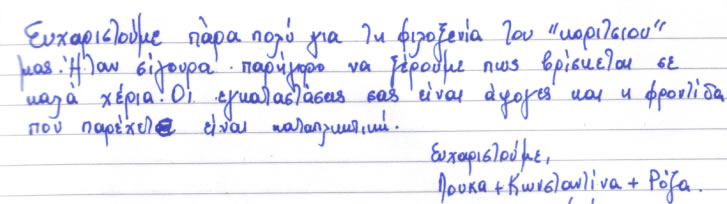 Ευχαριστούμε πάρα πολύ για τη φιλοξενία του "κοριτσιου"
μας. Ήταν σίγουρα παρήγορο να ξέρουμε πως βρίσκεται σε
καλά χέρια. Οι εγκαταστάσεις σας είναι άψογες και η φροντίδα
που παρέχετε είναι καταπληκτική.
Ευχαριστούμε,
Λουκα + Κωνσταντίνα + Ρόζα.